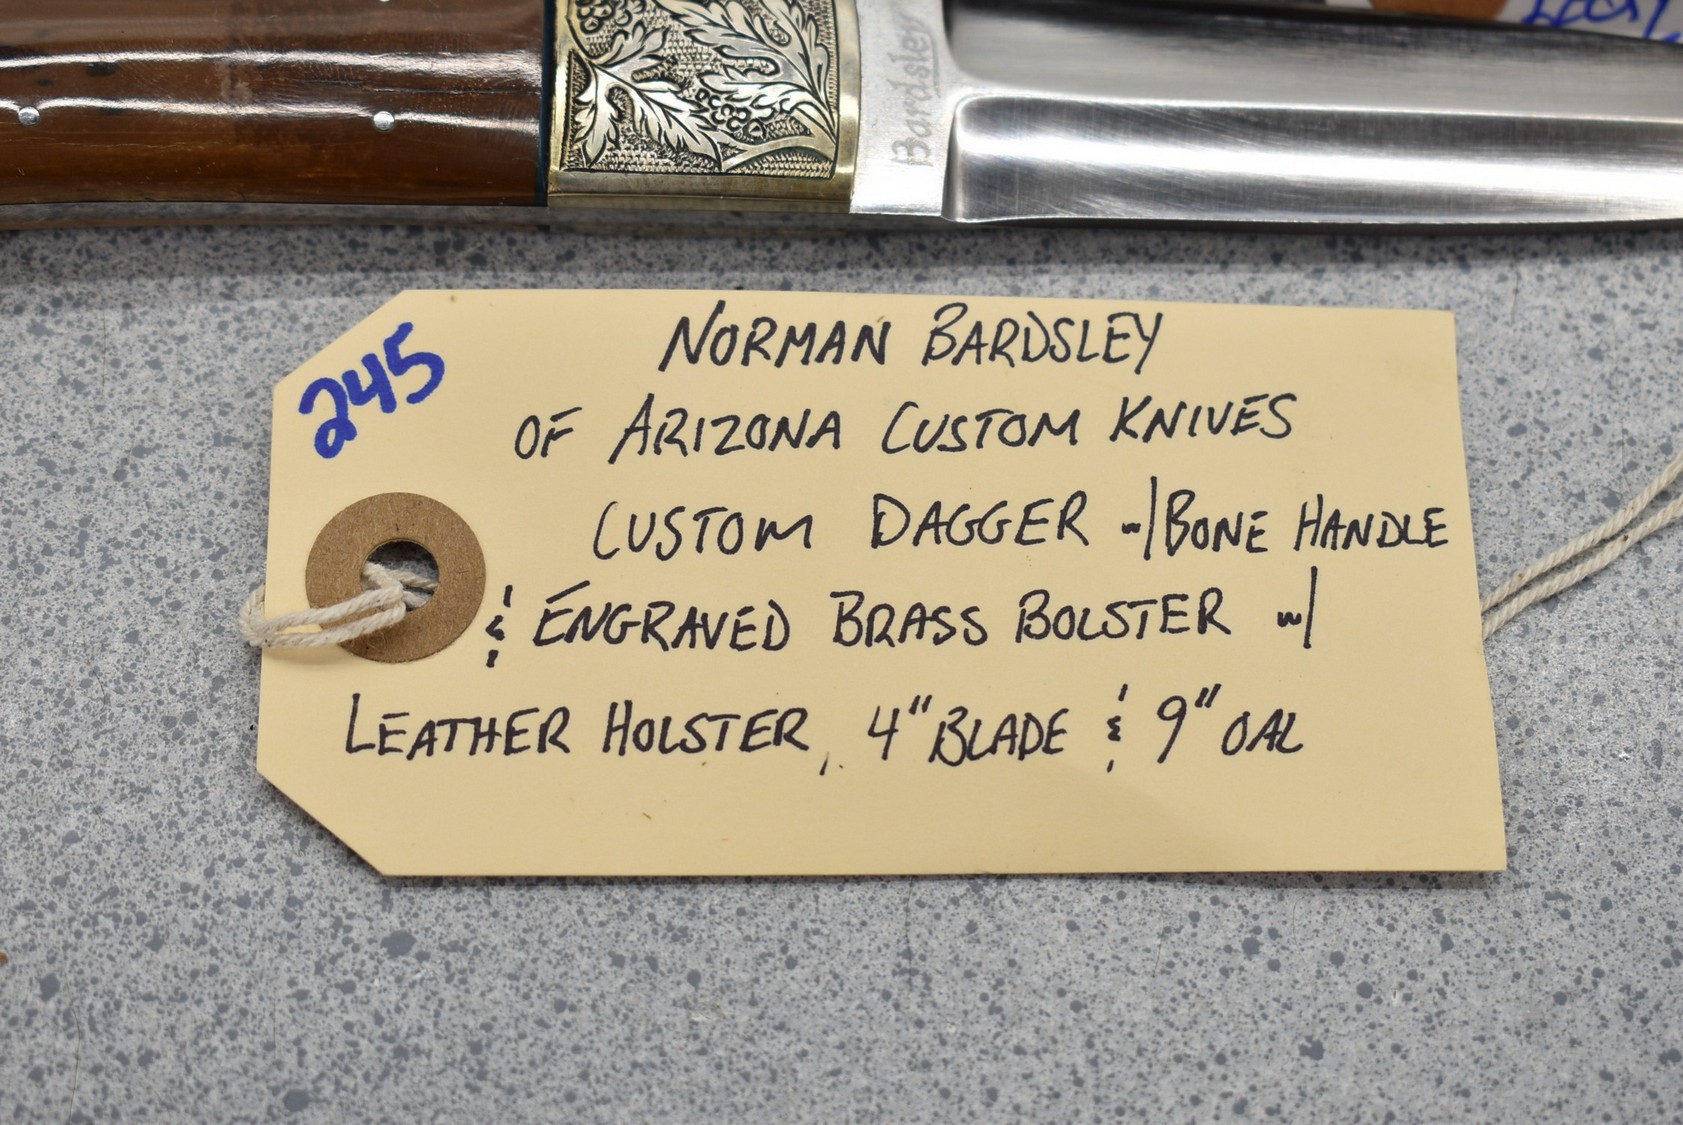 Bardsley
245
NORMAN BARDSLEY
OF ARIZONA CUSTOM KNIVES
CUSTOM DAGGER w/ BONE HANDLE
& ENGRAVED BRASS BOLSTER w/
LEATHER HOLSTER, 4" BLADE & 9" OAL